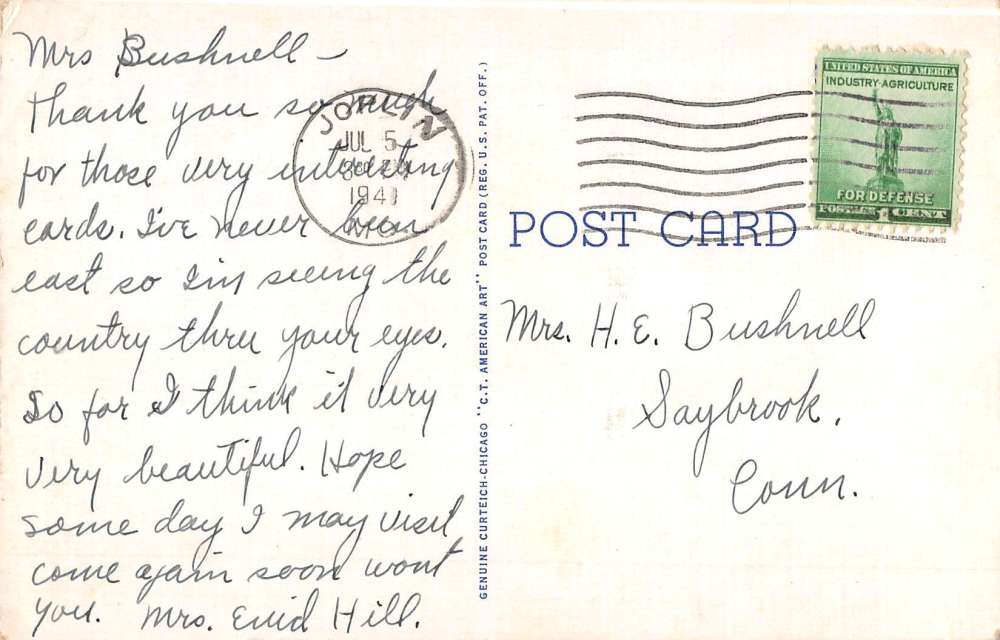 Mrs Bushnell –
Thank you so much
for those very interesting
cards. I've never been
east so I'm seeing the
country thru your eyes.
So far I think it very
very beautiful. Hope
some day I may visit
come again soon wont
you. Mrs. Enid Hill.
JOPLIN
JUL 5
1941
GENUINE CURTEICH-CHICAGO "C.T. AMERICAN ART" POST CARD (REG. U.S. PAT. OFF.)
UNITED STATES OF AMERICA
INDUSTRY-AGRICULTURE
FOR DEFENSE
POSTAGE 1 CENT
POST CARD
Mrs. H. E. Bushnell
Saybrook,
Conn.